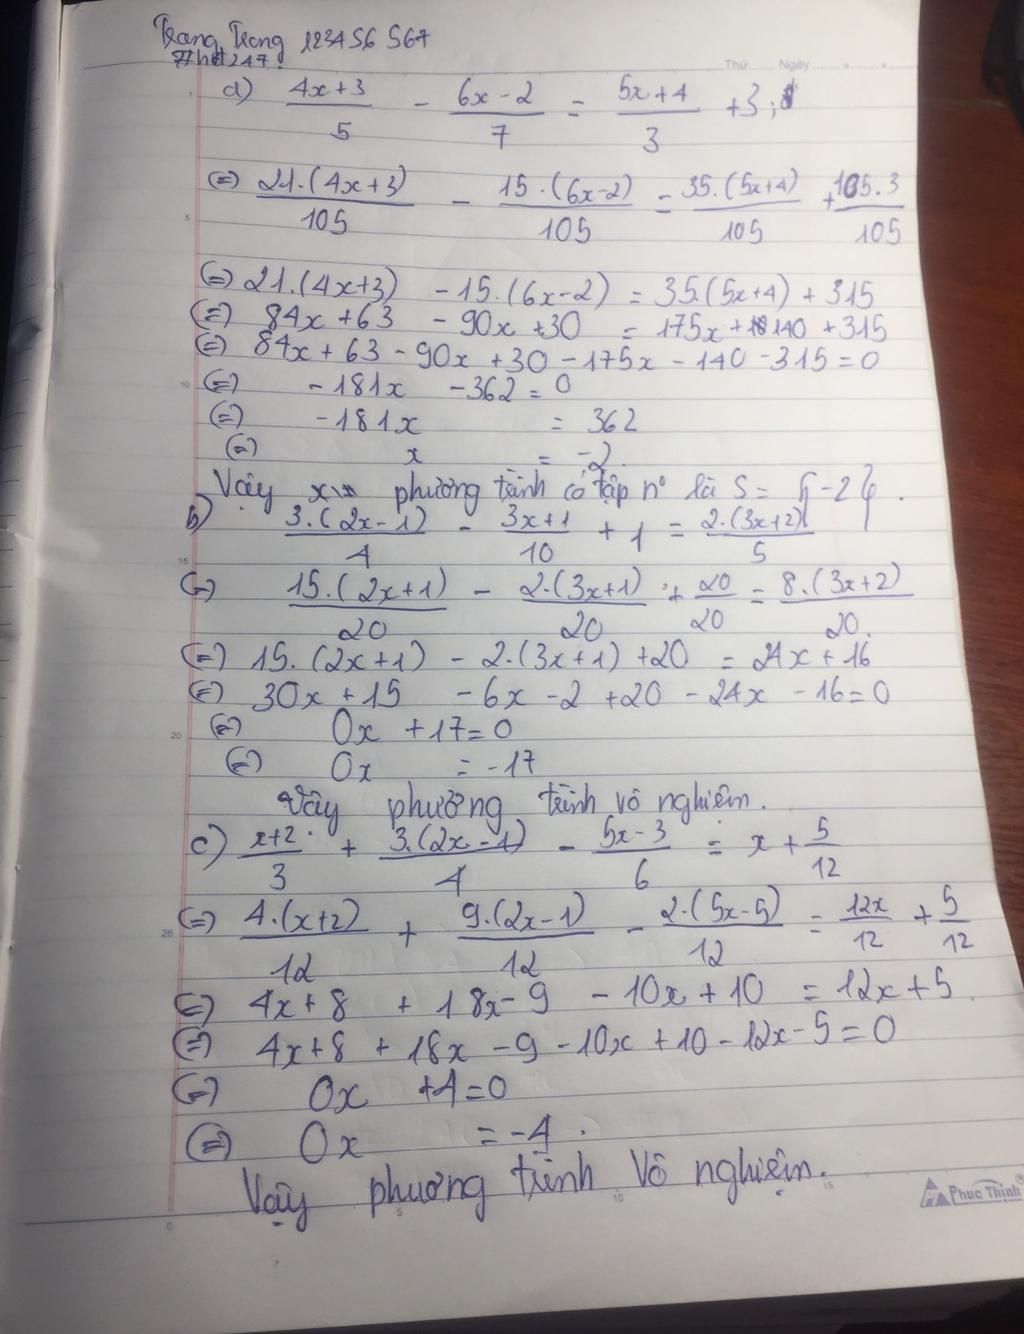 Trang Trang 1234 56 567
#hđt247
Thứ Ngày
a) (4x+3)/5 - (6x-2)/7 = (5x+4)/3 + 3;
(=) 21.(4x+3)/105 - 15.(6x-2)/105 = 35.(5x+4)/105 + 105.3/105
(=) 21.(4x+3) - 15.(6x-2) = 35.(5x+4) + 315
(=) 84x + 63 - 90x + 30 = 175x + 140 + 315
(=) 84x + 63 - 90x + 30 - 175x - 140 - 315 = 0
(=) -181x - 362 = 0
(=) -181x = 362
(=) x = -2
Vậy phương trình có tập n° là S = {-2}.
b) 3.(2x-1)/4 - (3x+1)/10 + 1 = 2.(3x+2)/5
(=) 15.(2x+1)/20 - 2.(3x+1)/20 + 20/20 = 8.(3x+2)/20.
(=) 15.(2x+1) - 2.(3x+1) + 20 = 24x + 16
(=) 30x + 15 - 6x - 2 + 20 - 24x - 16 = 0
(=) 0x + 17 = 0
(=) 0x = -17
Vậy phương trình vô nghiệm.
c) (x+2)/3 + 3.(2x-1)/4 - (5x-3)/6 = x + 5/12
(=) 4.(x+2)/12 + 9.(2x-1)/12 - 2.(5x-5)/12 = 12x/12 + 5/12
(=) 4x + 8 + 18x - 9 - 10x + 10 = 12x + 5
(=) 4x + 8 + 18x - 9 - 10x + 10 - 12x - 5 = 0
(=) 0x + 4 = 0
(=) 0x = -4.
Vậy phương trình vô nghiệm.
Phuc Thinh